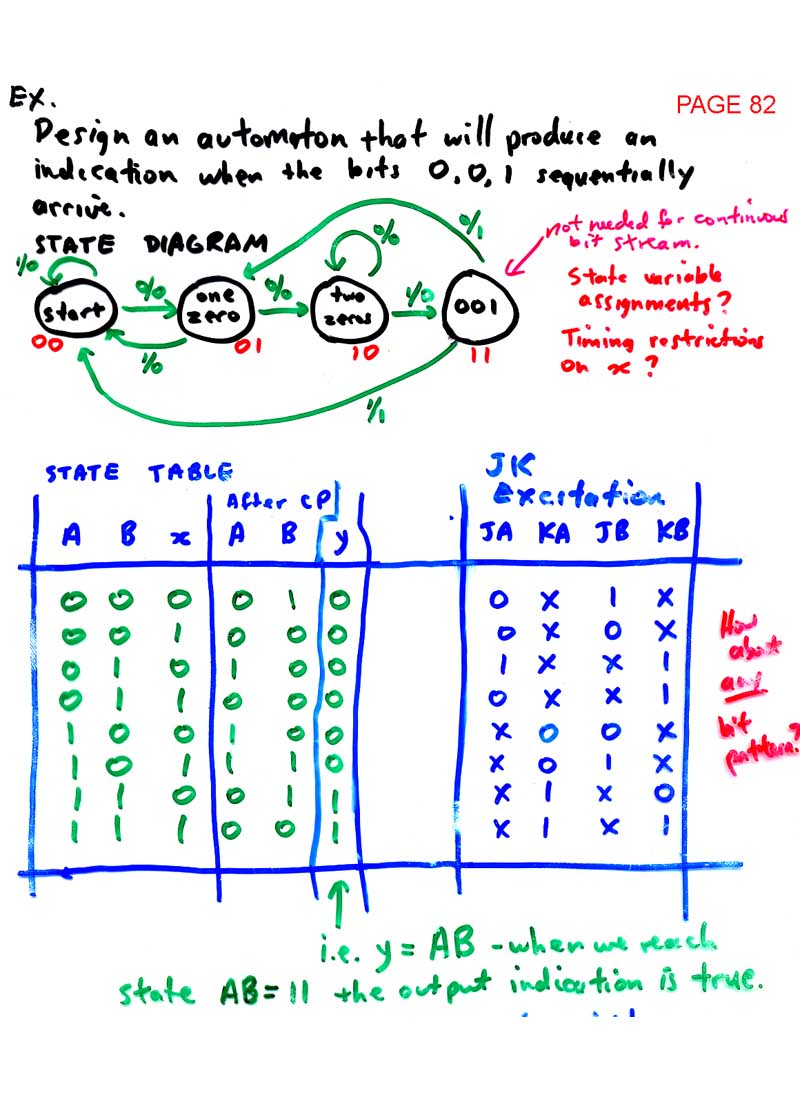 EX.
PAGE 82
Design an automaton that will produce an
indication when the bits 0,0,1 sequentially
arrive.
STATE DIAGRAM
not needed for continuous
bit stream.
State variable
assignments?
Timing restrictions
on x?
start
one
zero
two
zeros
001
00
01
10
11
STATE TABLE
After CP
JK
Excitation
A B x A B y JA KA JB KB
0 0 0 0 1 0 0 X 1 X
0 0 1 0 0 0 0 X 0 X
0 1 0 1 0 0 1 X X 1
0 1 1 0 0 0 0 X X 1
1 0 0 1 0 0 X 0 0 X
1 0 1 1 1 0 X 0 1 X
1 1 0 0 1 1 X 1 X 0
1 1 1 0 0 1 X 1 X 1
How
about
any
bit
pattern?
i.e. y = AB - when we reach
state AB = 11 the output indication is true.